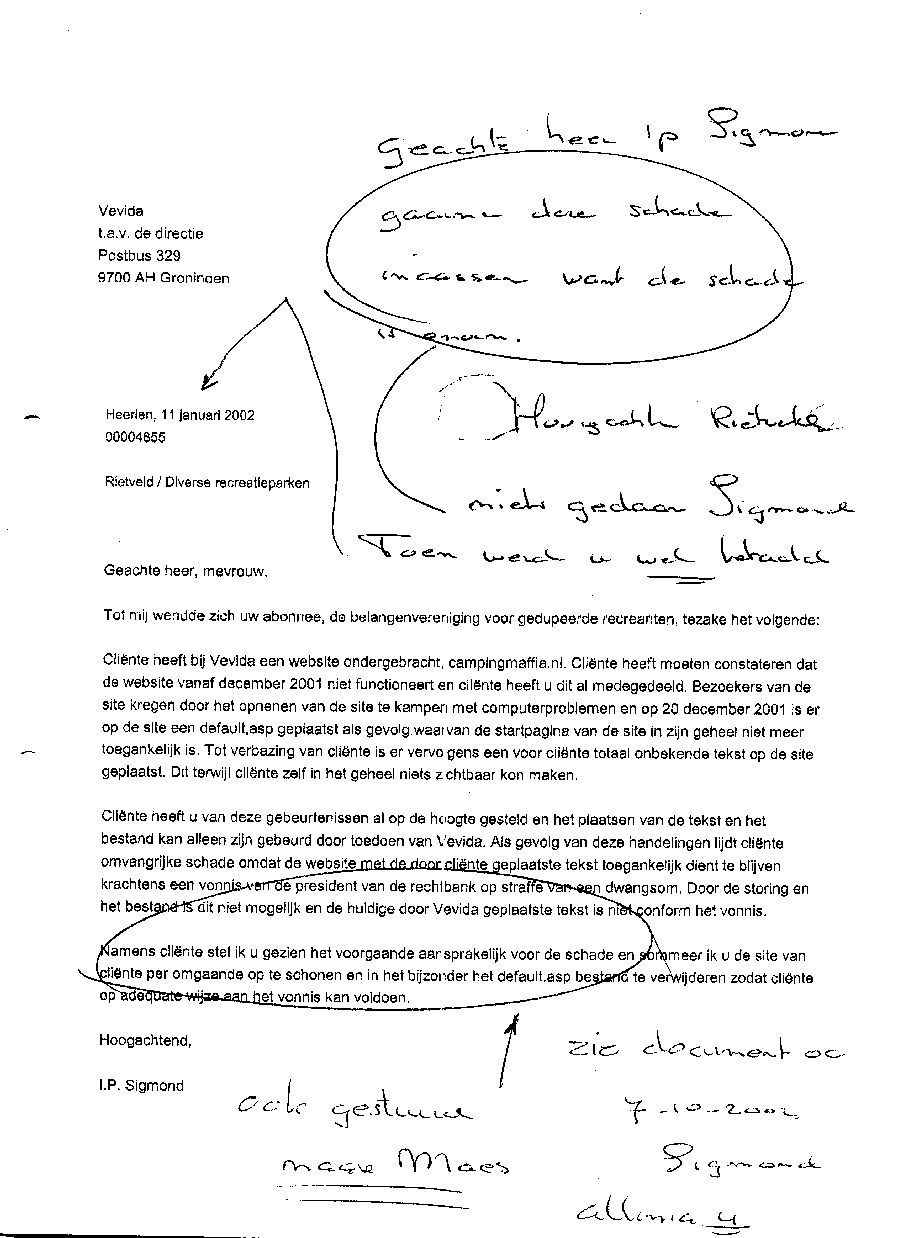 Geachte heer Ip Sigmon
gaarne deze schade
incassen want de schade
is enorm.
Vevida
t.a.v. de directie
Postbus 329
9700 AH Groningen
Heerlen, 11 januari 2002
00004855
Rietveld / Diverse recreatieparken
Hoogacht
niets gedaan Sigmond
Toen werd u wel betaald
Geachte heer, mevrouw,
Tot mij wendde zich uw abonnee, de belangenvereniging voor gedupeerde recreanten, tezake het volgende:
Cliënte heeft bij Vevida een website ondergebracht, campingmaffia.nl. Cliënte heeft moeten constateren dat
de website vanaf december 2001 niet functioneert en cliënte heeft u dit al medegedeeld. Bezoekers van de
site kregen door het openen van de site te kampen met computerproblemen en op 20 december 2001 is er
op de site een default.asp geplaatst als gevolg waarvan de startpagina van de site in zijn geheel niet meer
toegankelijk is. Tot verbazing van cliënte is er vervolgens een voor cliënte totaal onbekende tekst op de site
geplaatst. Dit terwijl cliënte zelf in het geheel niets zichtbaar kon maken.
Cliënte heeft u van deze gebeurtenissen al op de hoogte gesteld en het plaatsen van de tekst en het
bestand kan alleen zijn gebeurd door toedoen van Vevida. Als gevolg van deze handelingen lijdt cliënte
omvangrijke schade omdat de website met de door cliënte geplaatste tekst toegankelijk dient te blijven
krachtens een vonnis van de president van de rechtbank op straffe van een dwangsom. Door de storing en
het bestand is dit niet mogelijk en de huidige door Vevida geplaatste tekst is niet conform het vonnis.
Namens cliënte stel ik u gezien het voorgaande aansprakelijk voor de schade en sommeer ik u de site van
cliënte per omgaande op te schonen en in het bijzonder het default.asp bestand te verwijderen zodat cliënte
op adequate wijze aan het vonnis kan voldoen.
Hoogachtend,
I.P. Sigmond
zie document
7-10-2002
Sigmond
ook gestuurd
naar Maes